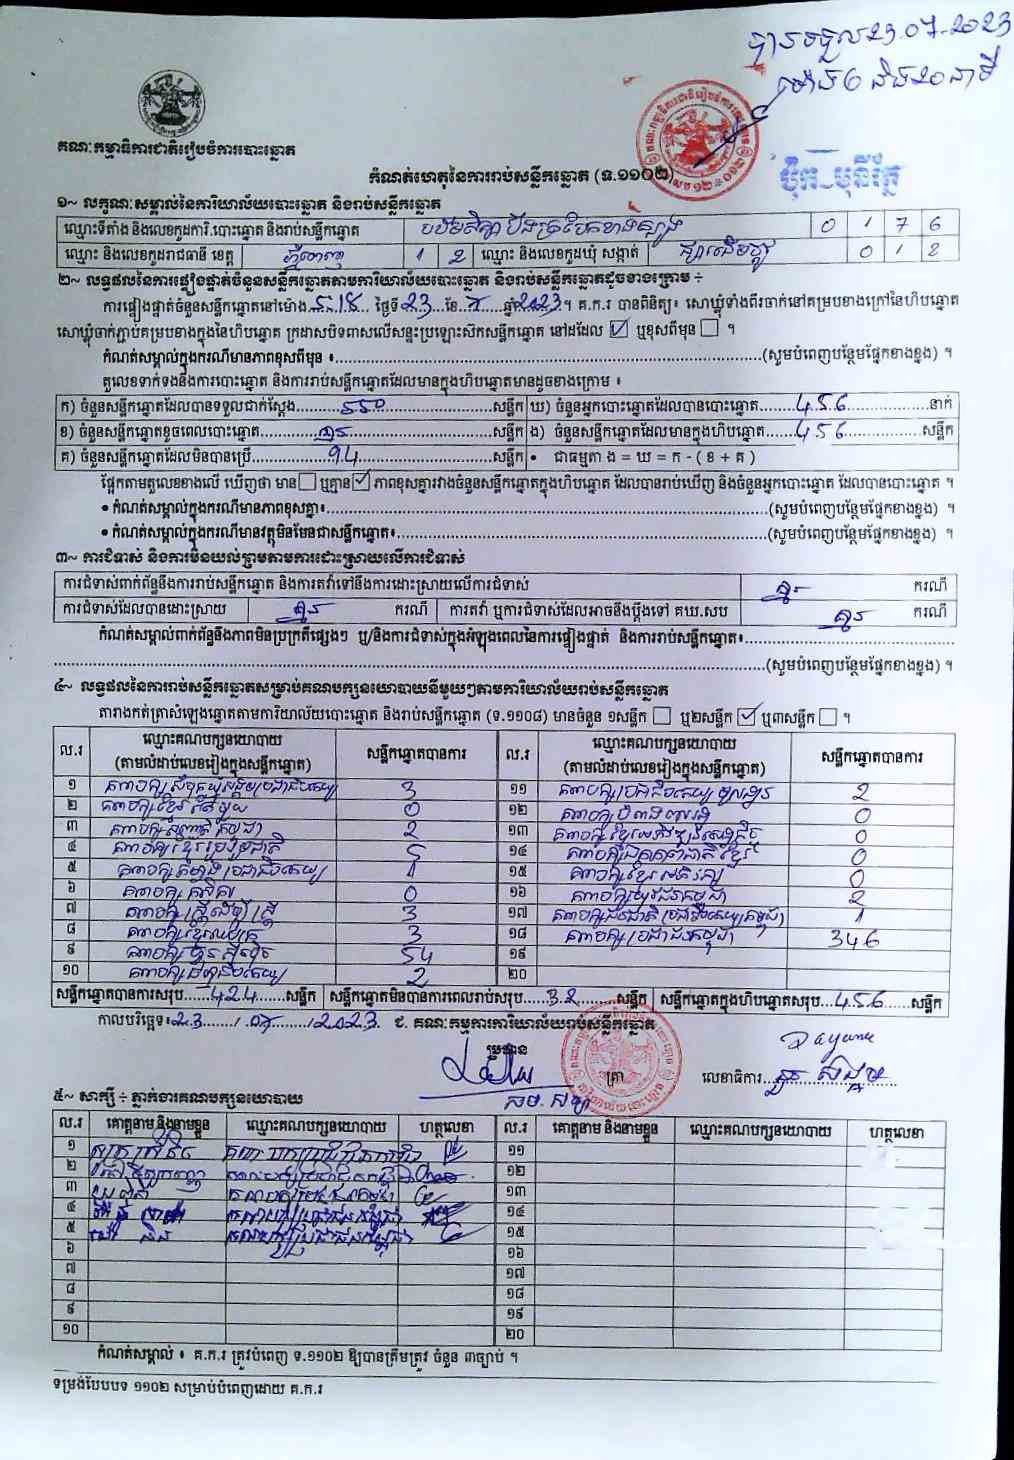 បានទទួល 23.07.2023
ម៉ោង 6 និង 20 នាទី
គណៈកម្មាធិការជាតិរៀបចំការបោះឆ្នោត
កំណត់ហេតុនៃការរាប់សន្លឹកឆ្នោត (ទ.១១០២)
ប៉ឹក-មុនីរ័ត្ន
១~ លក្ខណៈសម្គាល់នៃការិយាល័យបោះឆ្នោត និងរាប់សន្លឹកឆ្នោត
ឈ្មោះទីតាំង និងលេខកូដការិ.បោះឆ្នោត និងរាប់សន្លឹកឆ្នោត 0 1 7 6
ឈ្មោះ និងលេខកូដរាជធានី ខេត្ត ភ្នំពេញ 1 2 ឈ្មោះ និងលេខកូដឃុំ សង្កាត់ 0 1 2
២~ លទ្ធផលនៃការផ្ទៀងផ្ទាត់ចំនួនសន្លឹកឆ្នោតតាមការិយាល័យបោះឆ្នោត និងរាប់សន្លឹកឆ្នោតដូចខាងក្រោម ÷
ការផ្ទៀងផ្ទាត់ចំនួនសន្លឹកឆ្នោតនៅម៉ោង ថ្ងៃទី 23 ខែ ៧ ឆ្នាំ 2023 ។ គ.ក.រ បានពិនិត្យ៖ សោឃ្លុំទាំងពីរចាក់នៅគម្របខាងក្រៅនៃហិបឆ្នោត
សោឃ្លុំចាក់ភ្ជាប់គម្របខាងក្នុងនៃហិបឆ្នោត ក្រដាសបិទពាសលើសន្ទះប្រឡោះស៊កសន្លឹកឆ្នោត នៅដដែល ☑ ឬខុសពីមុន ☐ ។
កំណត់សម្គាល់ក្នុងករណីមានភាពខុសពីមុន ៖ (សូមបំពេញបន្ថែមផ្នែកខាងខ្នង) ។
តួលេខទាក់ទងនឹងការបោះឆ្នោត និងការរាប់សន្លឹកឆ្នោតដែលមានក្នុងហិបឆ្នោតមានដូចខាងក្រោម ៖
ក) ចំនួនសន្លឹកឆ្នោតដែលបានទទួលជាក់ស្តែង 550 សន្លឹក ឃ) ចំនួនអ្នកបោះឆ្នោតដែលបានបោះឆ្នោត 456 នាក់
ខ) ចំនួនសន្លឹកឆ្នោតខូចពេលបោះឆ្នោត គ្មាន សន្លឹក ង) ចំនួនសន្លឹកឆ្នោតដែលមានក្នុងហិបឆ្នោត 456 សន្លឹក
គ) ចំនួនសន្លឹកឆ្នោតដែលមិនបានប្រើ 94 សន្លឹក • ជាធម្មតា ង = ឃ = ក - ( ខ + គ )
ផ្អែកតាមតួលេខខាងលើ ឃើញថា មាន ☐ ឬគ្មាន ☑ ភាពខុសគ្នារវាងចំនួនសន្លឹកឆ្នោតក្នុងហិបឆ្នោត ដែលបានរាប់ឃើញ និងចំនួនអ្នកបោះឆ្នោត ដែលបានបោះឆ្នោត ។
• កំណត់សម្គាល់ក្នុងករណីមានភាពខុសគ្នា៖ (សូមបំពេញបន្ថែមផ្នែកខាងខ្នង) ។
• កំណត់សម្គាល់ក្នុងករណីមានវត្ថុមិនមែនជាសន្លឹកឆ្នោត៖ (សូមបំពេញបន្ថែមផ្នែកខាងខ្នង) ។
៣~ ការជំទាស់ និងការមិនយល់ព្រមតាមការដោះស្រាយលើការជំទាស់
ការជំទាស់ពាក់ព័ន្ធនឹងការរាប់សន្លឹកឆ្នោត និងការតវ៉ាទៅនឹងការដោះស្រាយលើការជំទាស់ គ្មាន ករណី
ការជំទាស់ដែលបានដោះស្រាយ គ្មាន ករណី ការតវ៉ា ឬការជំទាស់ដែលអាចនឹងប្តឹងទៅ គឃ.សប គ្មាន ករណី
កំណត់សម្គាល់ពាក់ព័ន្ធនឹងភាពមិនប្រក្រតីផ្សេងៗ ឬ/និងការជំទាស់ក្នុងអំឡុងពេលនៃការផ្ទៀងផ្ទាត់ និងការរាប់សន្លឹកឆ្នោត៖
(សូមបំពេញបន្ថែមផ្នែកខាងខ្នង) ។
៤~ លទ្ធផលនៃការរាប់សន្លឹកឆ្នោតសម្រាប់គណបក្សនយោបាយនីមួយៗតាមការិយាល័យរាប់សន្លឹកឆ្នោត
តារាងកត់ត្រាសំឡេងឆ្នោតតាមការិយាល័យបោះឆ្នោត និងរាប់សន្លឹកឆ្នោត (ទ.១១០៨) មានចំនួន ១សន្លឹក ☐ ឬ២សន្លឹក ☑ ឬ៣សន្លឹក ☐ ។
ល.រ ឈ្មោះគណបក្សនយោបាយ (តាមលំដាប់លេខរៀងក្នុងសន្លឹកឆ្នោត) សន្លឹកឆ្នោតបានការ ល.រ ឈ្មោះគណបក្សនយោបាយ (តាមលំដាប់លេខរៀងក្នុងសន្លឹកឆ្នោត) សន្លឹកឆ្នោតបានការ
១ 3 ១១ 2
២ គណបក្សខ្មែររួបរួម 0 ១២ 0
៣ 2 ១៣ 0
៤ គណបក្សខ្មែររួបរួមជាតិ 5 ១៤ 0
៥ 1 ១៥ 0
៦ 0 ១៦ គណបក្សយុវជនកម្ពុជា 2
៧ គណបក្សស្ត្រីដើម្បីស្ត្រី 3 ១៧ 1
៨ 3 ១៨ គណបក្សប្រជាជនកម្ពុជា 346
៩ គណបក្សហ្វ៊ុនស៊ិនប៉ិច 54 ១៩
១០ 2 ២០
សន្លឹកឆ្នោតបានការសរុប 424 សន្លឹក សន្លឹកឆ្នោតមិនបានការពេលរាប់សរុប 32 សន្លឹក សន្លឹកឆ្នោតក្នុងហិបឆ្នោតសរុប 456 សន្លឹក
កាលបរិច្ឆេទ៖ 23 / 07 / 2023 ជ. គណៈកម្មការការិយាល័យរាប់សន្លឹកឆ្នោត
ប្រធាន
ត្រា លេខាធិការ
៥~ សាក្សី ÷ ភ្នាក់ងារគណបក្សនយោបាយ
ល.រ គោត្តនាម និងនាមខ្លួន ឈ្មោះគណបក្សនយោបាយ ហត្ថលេខា ល.រ គោត្តនាម និងនាមខ្លួន ឈ្មោះគណបក្សនយោបាយ ហត្ថលេខា
១ ១១
២ ១២
៣ គណបក្សប្រជាជនកម្ពុជា ១៣
៤ គណបក្សប្រជាជនកម្ពុជា ១៤
៥ គណបក្សប្រជាជនកម្ពុជា ១៥
៦ ១៦
៧ ១៧
៨ ១៨
៩ ១៩
១០ ២០
កំណត់សម្គាល់ ៖ គ.ក.រ ត្រូវបំពេញ ទ.១១០២ ឱ្យបានត្រឹមត្រូវ ចំនួន ៣ច្បាប់ ។
ទម្រង់បែបបទ ១១០២ សម្រាប់បំពេញដោយ គ.ក.រ